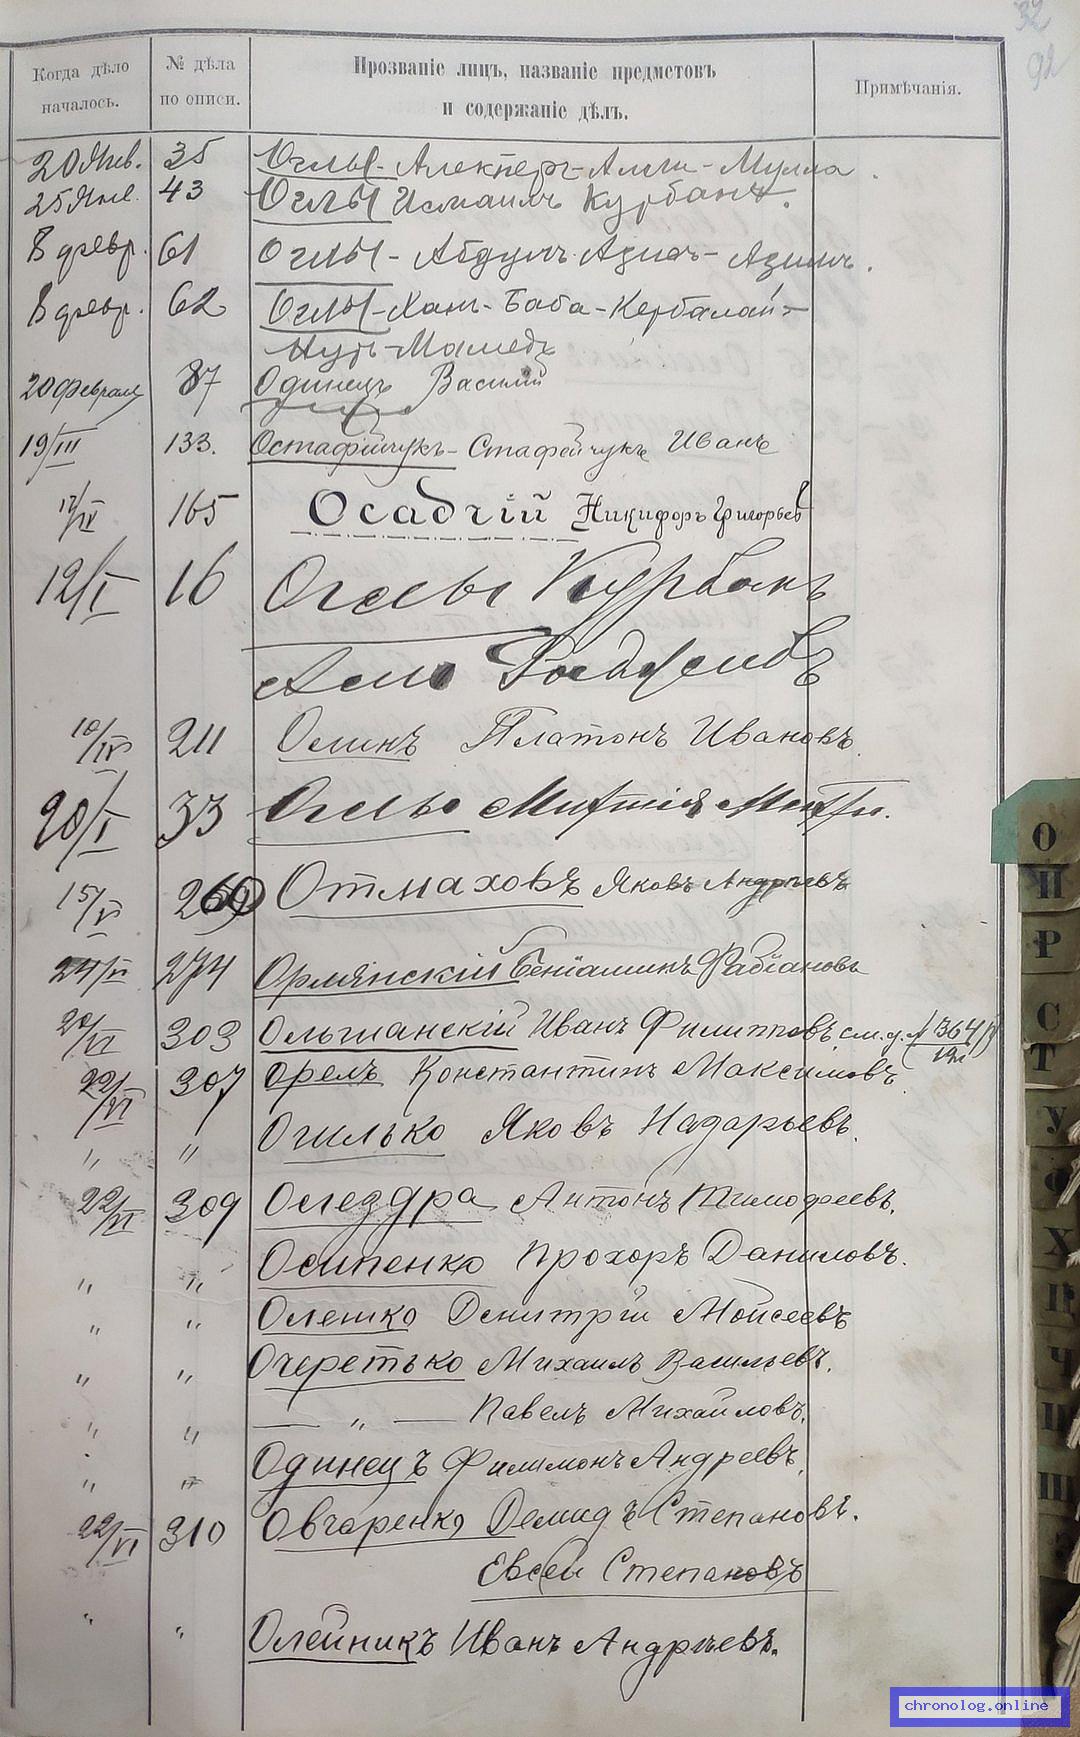 32
92
Когда дѣло началось.
№ дѣла по описи.
Прозваніе лицъ, названіе предметовъ и содержаніе дѣлъ.
Примѣчанія.
20 Янв. 35 Оглы-Алекперъ-Алли-Мулла
25 Янв. 43 Оглы Исмаилъ Курбанъ.
8 февр. 61 Оглы-Абдулъ-Азисъ-Азимъ.
8 февр. 62 Оглы-Ханъ-Баба-Кербалай-
Нуръ-Мамедъ
20 февраля 87 Одинецъ Василій
19/III 133. Остафійчукъ-Стафейчукъ Иванъ
12/IV 165 Осадчій Никифоръ Григорьевъ
12/I 16 Оглы Курбанъ
10/IV 211 Олинъ Платонъ Ивановъ
20/I 33 Оглы
15/V Отмаховъ Яковъ Андреевъ
24/VI 274 Орлянскій Беніаминъ Фабіановъ
20/VI 303 Ольшанскій Иванъ Филипповъ см. д. № 364
22/VI 307 Орелъ Константинъ Максимовъ
" " Огилько Яковъ Назарьевъ.
22/VI 309 Олездра Антонъ Тимофеевъ.
" " Осипенко Прохоръ Даниловъ.
" " Олешко Дмитрій Моисеевъ
" " Очеретько Михаилъ Васильевъ.
" " — " — Павелъ Михайловъ.
" " Одинецъ Филимонъ Андреевъ.
22/VI 310 Овчаренко Демидъ Степановъ.
Евсей Степановъ
" " Олейникъ Иванъ Андреевъ.
О
П
Р
С
Т
У
Ф
Х
Ц
Ч
Ш
chronolog.online